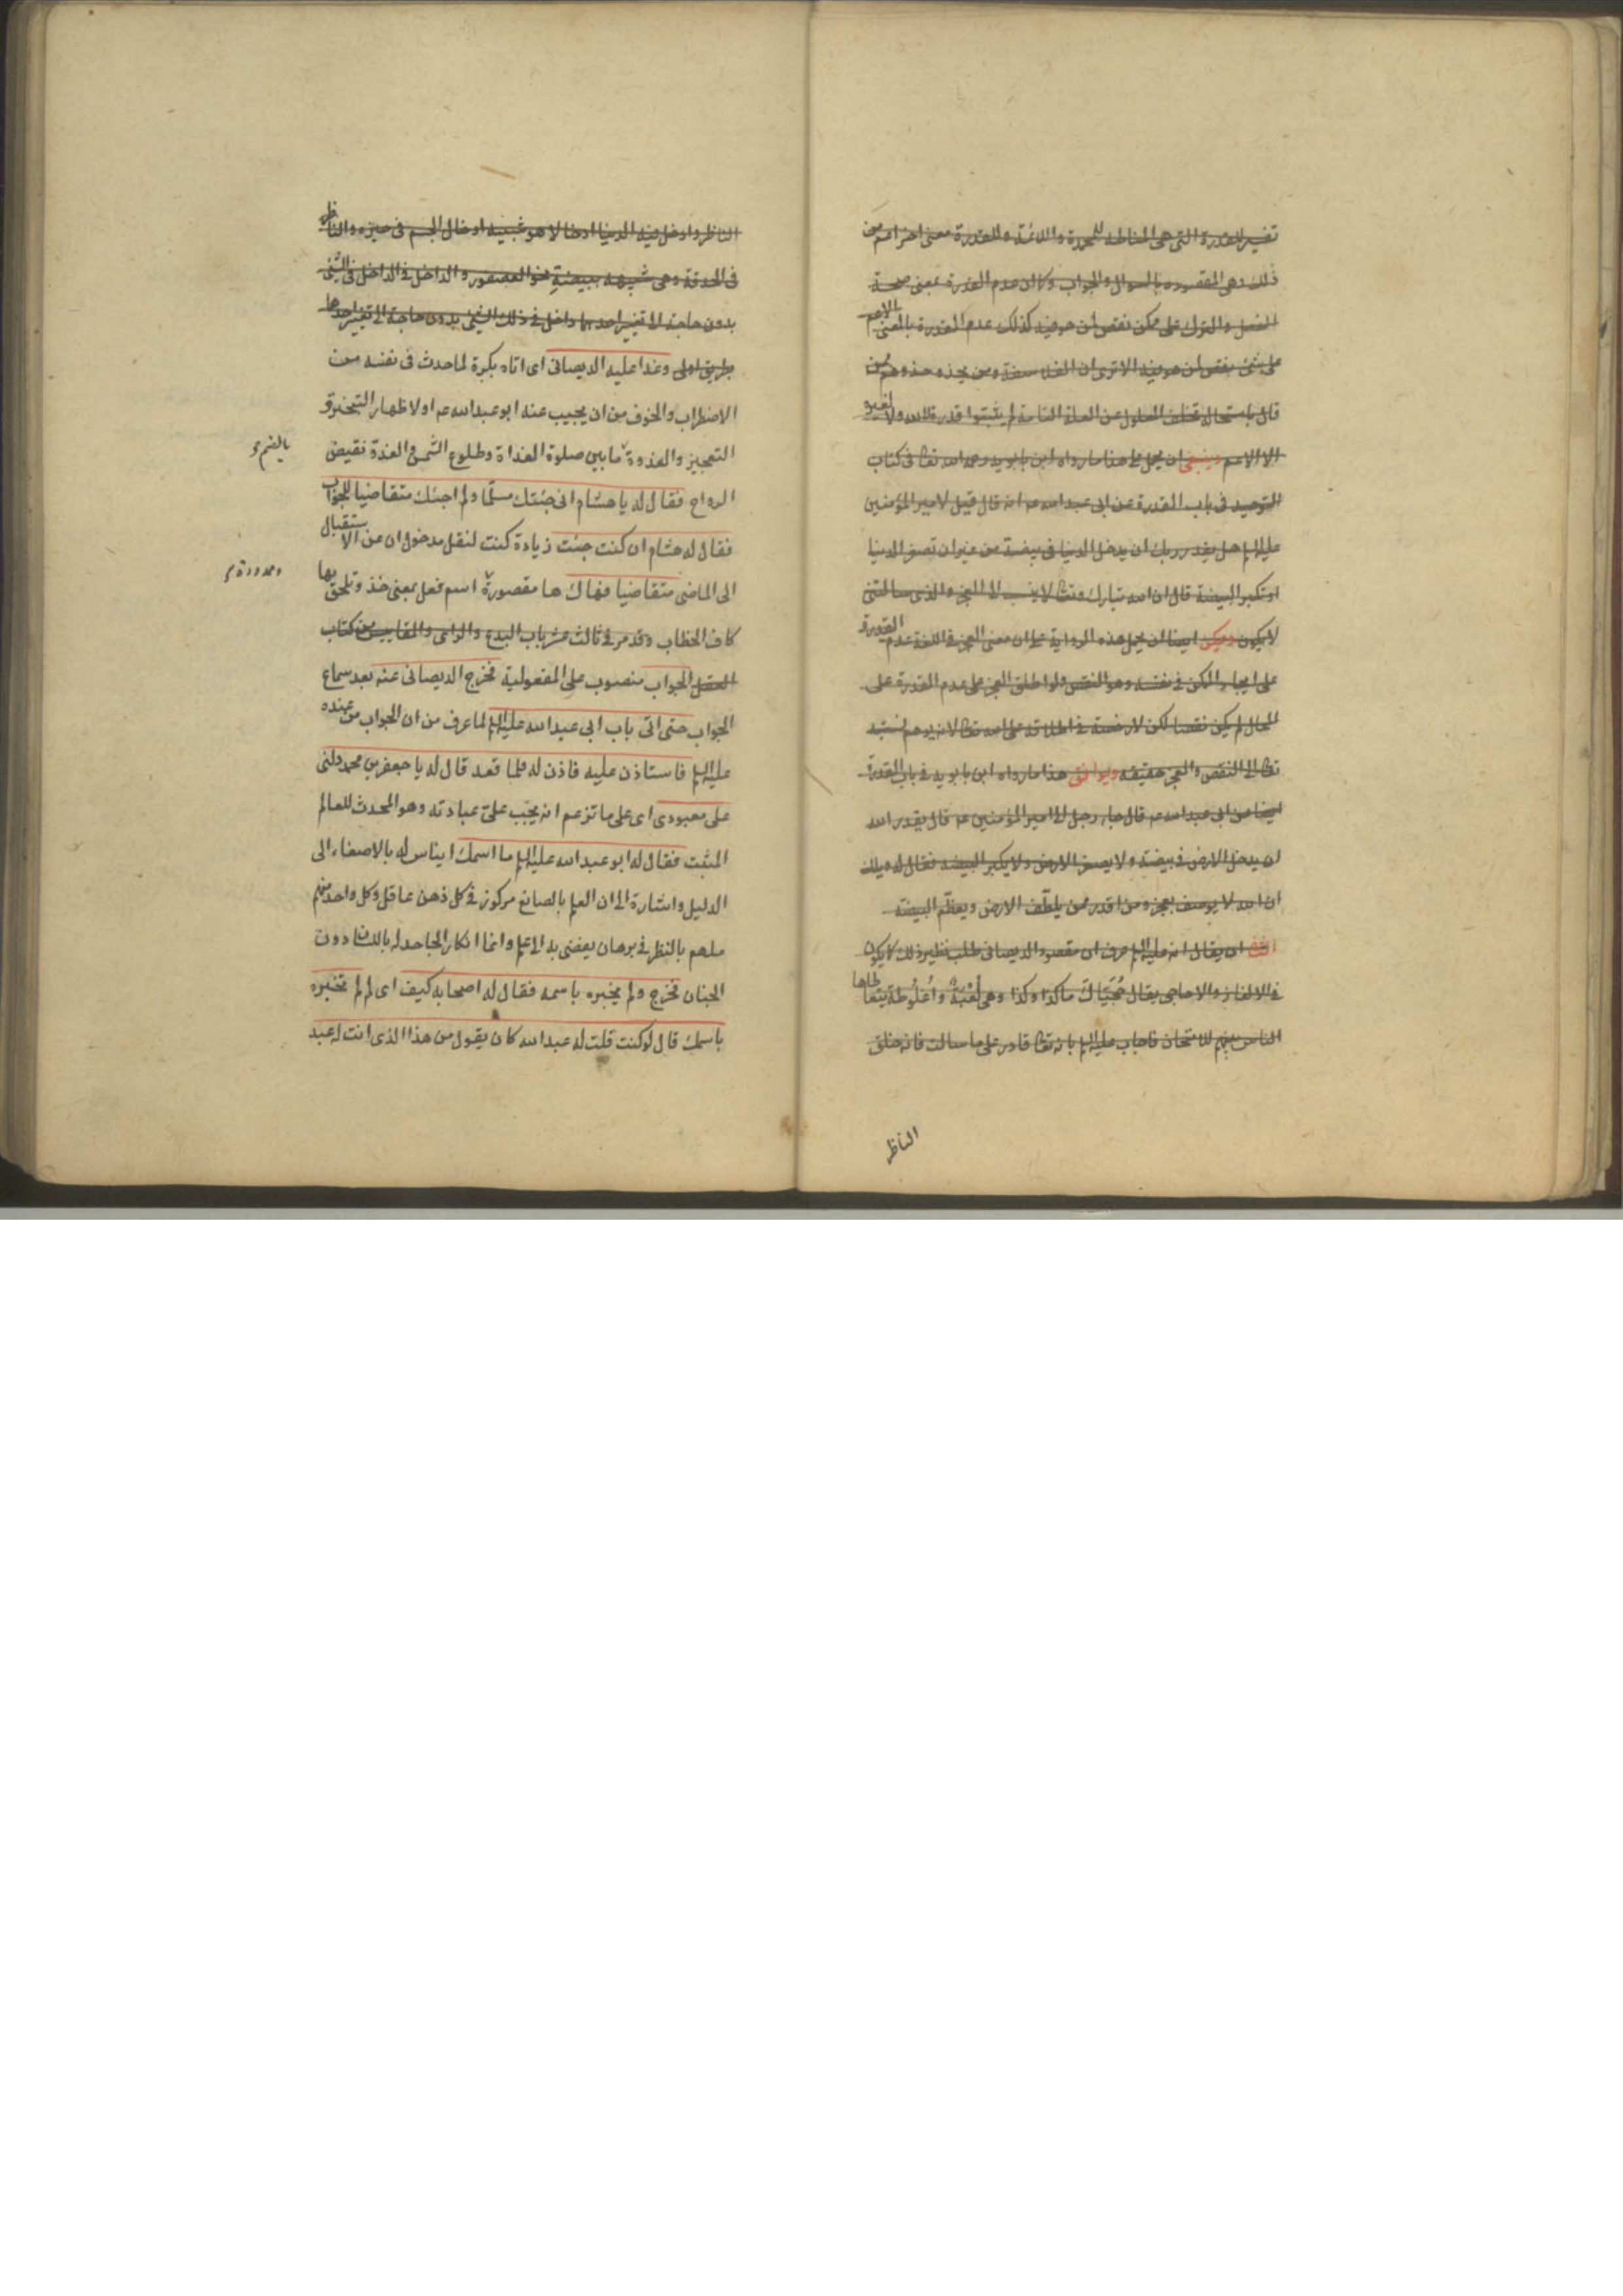 تفسير للقدرة التى هى المناطة للمحمدة واللائمة وللقدرة معنى اخر اعم من
ذلك وهى المقصودة بالسوال والجواب وكما ان عدم القدرة بمعنى صحة
الفعل والترك على ممكن نقص لمن هو فيه كذلك عدم القدرة بالمعنى الاعم
على شئ نقص لمن هو فيه الا ترى ان الفلاسفة ومن يحذو حذوهم من
قال باستحالة تخلف المعلول عن العلة التامة لم يثبتوا قدرة لله ولا لغيره
الا الاعم وينبغى ان يحمل على هذا ما رواه ابن بابويه رحمه الله تعالى فى كتاب
التوحيد فى باب القدرة عن ابى عبد الله عم انه قال قيل لامير المؤمنين
عليه السلم هل يقدر ربك ان يدخل الدنيا فى بيضة من غير ان تصغر الدنيا
او تكبر البيضة قال ان الله تبارك وتعالى لا ينسب الى العجز والذى سالتنى
لا يكون ويمكن ايضا ان يحمل هذه الرواية على ان معنى العجز فى اللغة عدم القدرة
على ايجاد الممكن فى نفسه وهو النقص ولو اطلق العجز على عدم القدرة على
المحال لم يكن نقصا لكن لا رخصة فى اطلاقه على الله تعالى لانه يوهم نسبته
تعالى الى النقص والعجز حقيقة ويوافق هذا ما رواه ابن بابويه فى باب القدرة
ايضا عن ابى عبد الله عم قال جاء رجل الى امير المؤمنين عم قال يقدر الله
ان يدخل الارض فى بيضة ولا يصغر الارض ولا يكبر البيضة فقال له ويلك
ان الله لا يوصف بعجز ومن اقدر ممن يلطف الارض ويعظم البيضة
ان يقال انه عليه السلم عرف ان مقصود الديصانى طلب نظير ذلك كما يكون
فى الالغاز والاحاجى يقال حُجَيَّاكَ ما كذا وكذا وهى لُعْبَة واُغلُوطَة يتعاطاها
الناس بينهم للامتحان فاجاب عليه السلم بانه تعالى قادر على ما سالت فانه خلق
الناظر
الناظر وادخل فيه الدنيا ادخالا هو شبيه ادخال الجسم فى حيزه والناظر
فى الحدقة وهى شبيهة ببيضة نحو العصفور والداخل فى الداخل فى الشئ
بدون حاجة الى تغيير احدهما داخل فى ذلك الشئ بدون حاجة الى تغيير احدها
بطريق اولى وغدا عليه الديصانى اى اتاه بكرة لما حدث فى نفسه من
الاضطراب والخوف من ان يجيب عنه ابو عبد الله عم اولا ظهار التبختر و
التعجيز والغدوة ما بين صلوة الغداة وطلوع الشمس والغدة نقيض
بالضم
الرواح فقال له يا هشام انى جئتك مسلّما ولم اجئك متقاضيا للجواب
فقال له هشام ان كنت جئت زيادة كنت لنقل مدخول ان عن الاستقبال
الى الماضى متقاضيا فهاك ها مقصورة اسم فعل بمعنى خذ وتلحق بها
وممدودة
كاف الخطاب وقد مر فى ثالث عشر باب البدع والراى والمقاييس من كتاب
العقل الجواب منصوب على المفعولية فخرج الديصانى عنه بعد سماع
الجواب حتى اتى باب ابى عبد الله عليه السلم لما عرف من ان الجواب من عنده
عليه السلم فاستاذن عليه فاذن له فلما قعد قال له يا جعفر بن محمد دلنى
على معبودى اى على ما تزعم انه يجب علىّ عبادته وهو المحدث للعالم
المثبت فقال له ابو عبد الله عليه السلم ما اسمك ايناس له بالاصغاء الى
الدليل واشارة الى ان العلم بالصانع مركوز فى كل ذهن عاقل وكل واحد منهم
ملهم بالنظر فى برهان يفضى به الى علم وانما انكار الجاحد له باللسان دون
الجنان فخرج ولم يخبره باسمه فقال له اصحابه كيف اى لم لم تخبره
باسمك قال لو كنت قلت له عبد الله كان يقول من هذا الذى انت له عبد